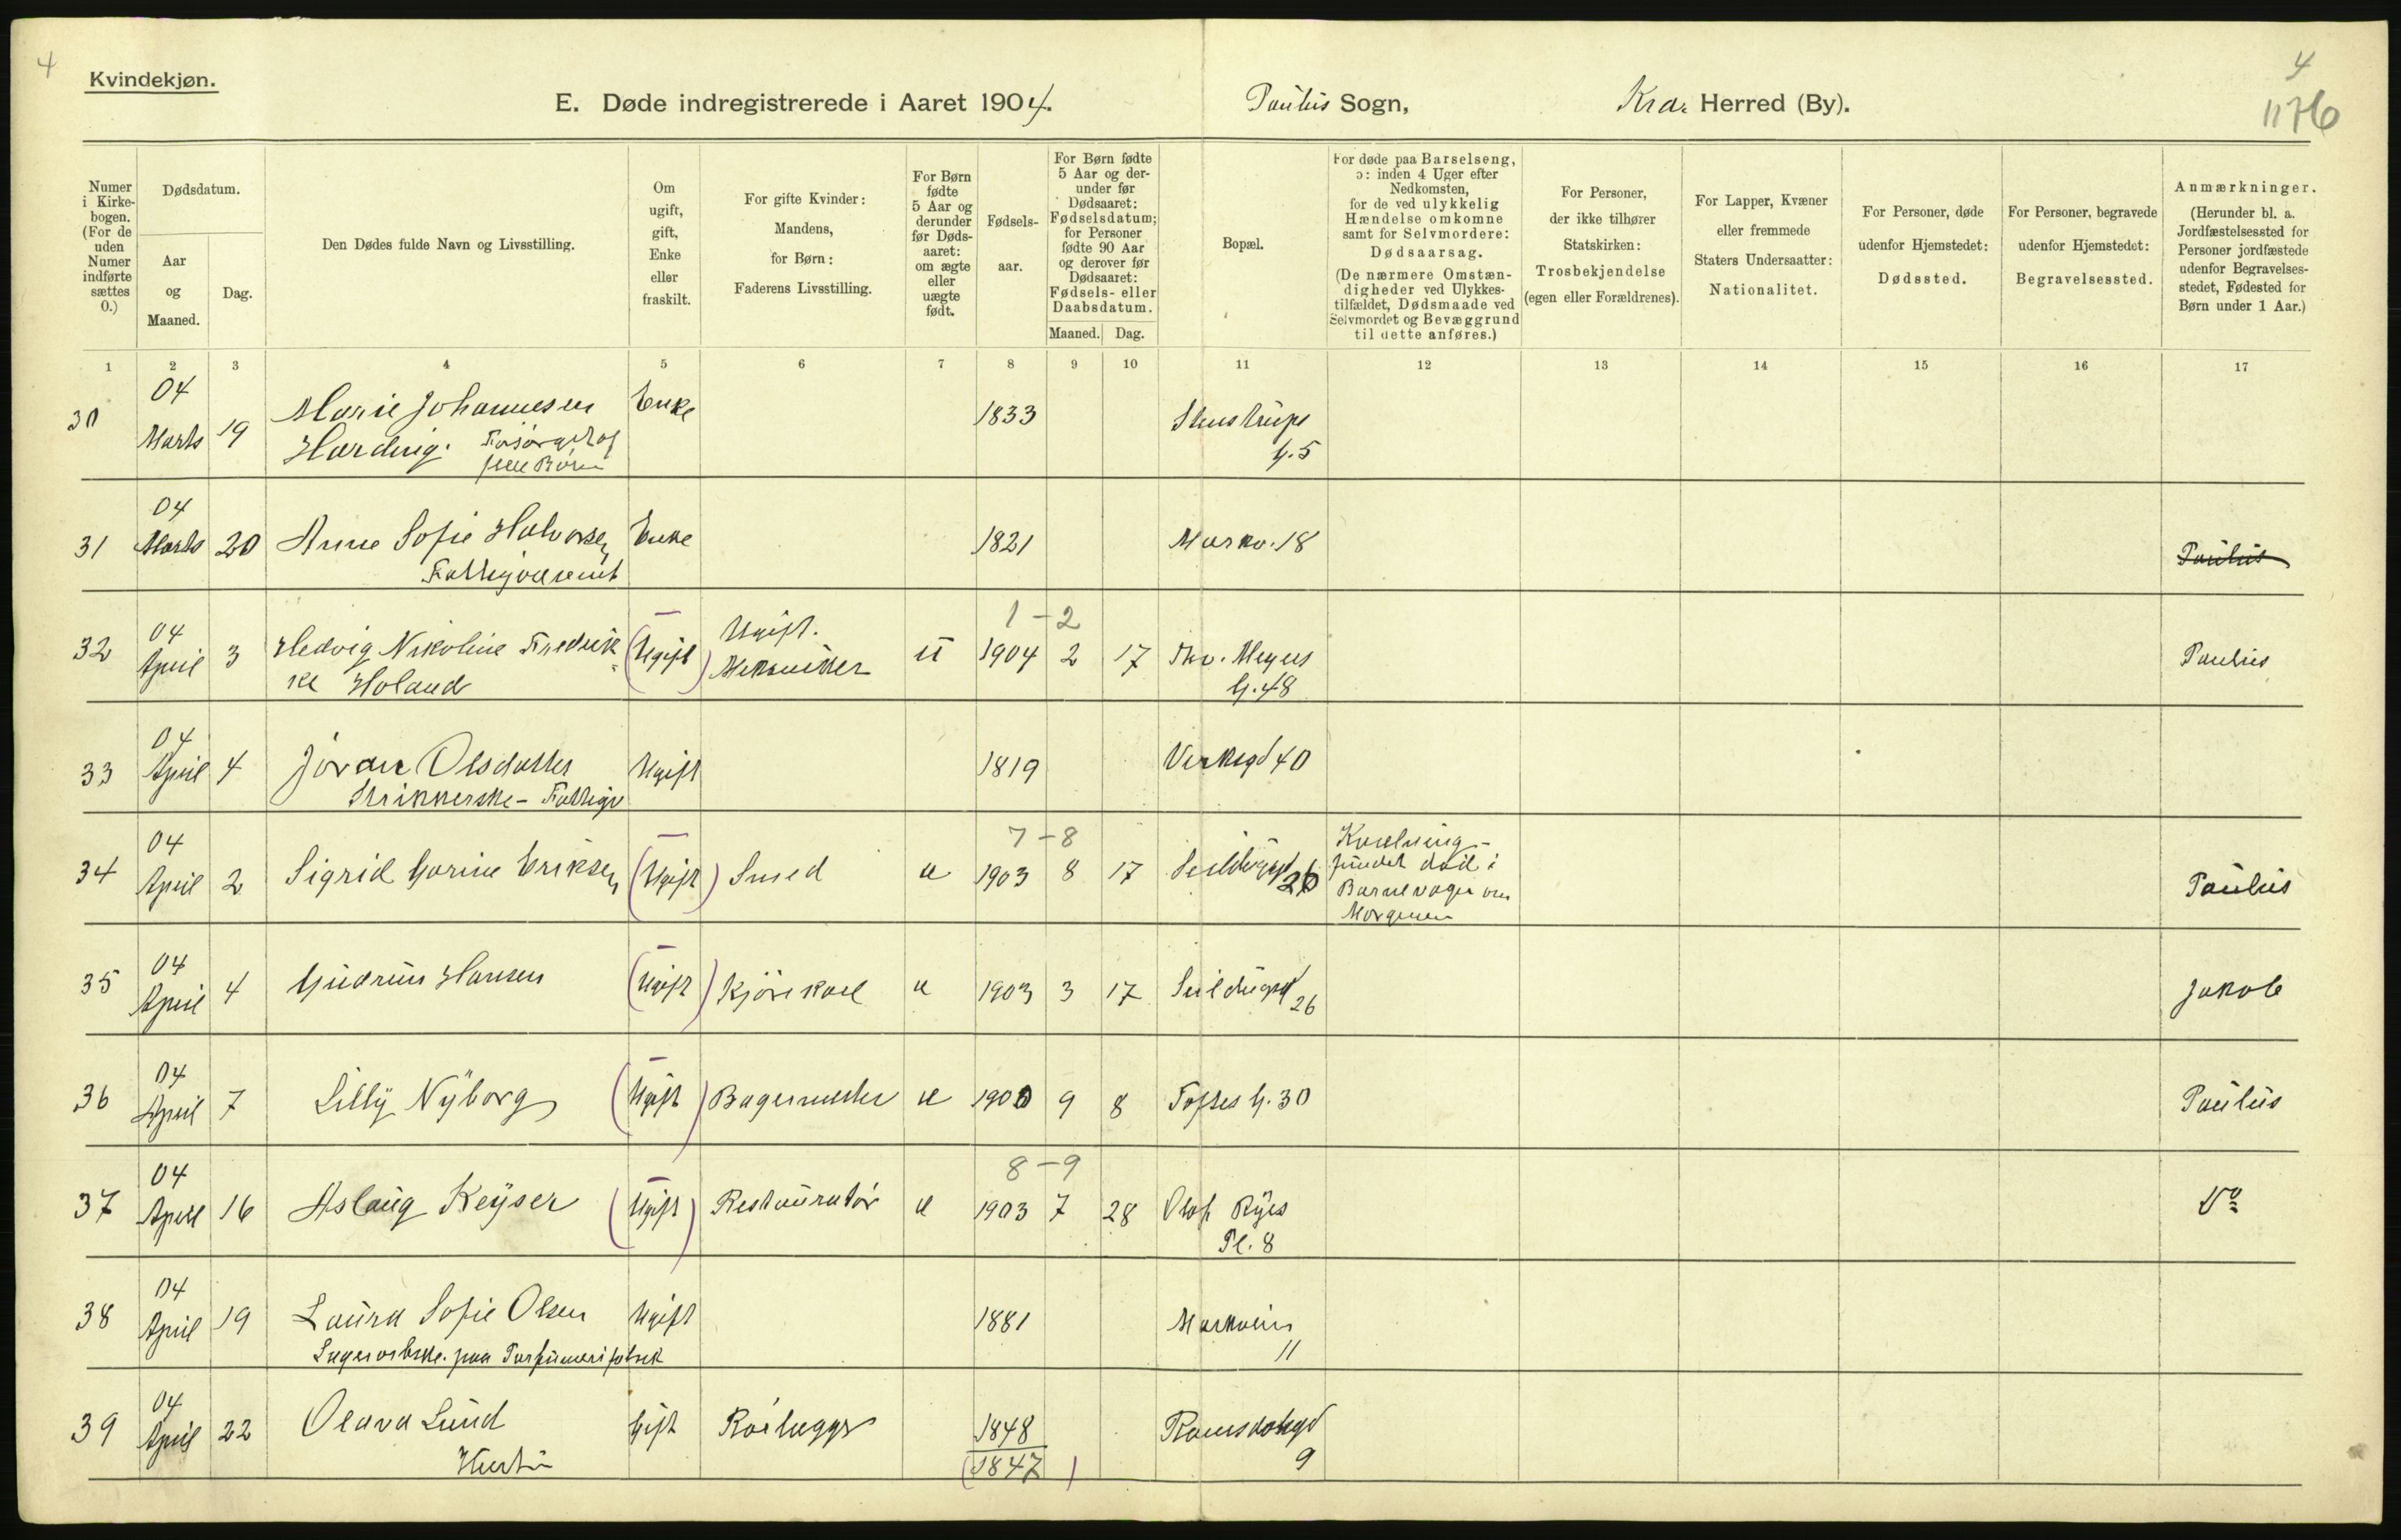 4
Kvindekjøn.
4
E. Døde indregistrerede i Aaret 1904.
Paulus Sogn,
Kra. Herred (By).
1176
Numer i Kirke-bogen. (For de uden Numer indførte sættes 0.)
Dødsdatum.
Aar og Maaned.
Dag.
Den Dødes fulde Navn og Livsstilling.
Om ugift, gift, Enke eller fraskilt.
For gifte Kvinder: Mandens, for Børn: Faderens Livsstilling.
For Børn fødte 5 Aar og derunder før Døds-aaret: om ægte eller uægte født.
Fødsels-aar.
For Børn fødte 5 Aar og der-under før Dødsaaret: Fødselsdatum; for Personer fødte 90 Aar og derover før Dødsaaret: Fødsels- eller Daabsdatum.
Maaned. Dag.
Bopæl.
For døde paa Barselseng, ɔ: inden 4 Uger efter Nedkomsten, for de ved ulykkelig Hændelse omkomne samt for Selvmordere: Dødsaarsag. (De nærmere Omstæn-digheder ved Ulykkes-tilfældet, Dødsmaade ved Selvmordet og Bevæggrund til dette anføres.)
For Personer, der ikke tilhører Statskirken: Trosbekjendelse (egen eller Forældrenes).
For Lapper, Kvæner eller fremmede Staters Undersaatter: Nationalitet.
For Personer, døde udenfor Hjemstedet: Dødssted.
For Personer, begravede udenfor Hjemstedet: Begravelsessted.
Anmærkninger. (Herunder bl. a. Jordfæstelsessted for Personer jordfæstede udenfor Begravelses-stedet, Fødested for Børn under 1 Aar.)
1 2 3 4 5 6 7 8 9 10 11 12 13 14 15 16 17
04
30 Marts 19 Marie Johannesen Enke 1833 Stenstrups
Harding. Forsørget af G. 5
sine Børn
04
31 Marts 20 Anne Sofie Halvorsen Enke 1821 Markv. 18 Paulus
Fattigvæsenet
1-2
04 Ugift.
32 April 3 Hedvig Nikoline Fredrik (Ugift) u 1904 2 17 Thv. Meyers Paulus
ke Holand G. 48
04
33 April 4 Joran Olsdatter Ugift 1819 Verksgd 40
Strikkerske - Fattigv
04 7-8 Kvælning -
34 April 2 Sigrid Gorine Eriksen (Ugift) Smed æ 1903 8 17 Seildugsgd 26 fundet død i Paulus
Barnevogn om
Morgenen
04
35 April 4 Gudrun Hansen (Ugift) Kjørekarl æ 1903 3 17 Seildugsgd Jakob
26
04
36 April 7 Lilly Nyborg (Ugift) Bagermester æ 1900 9 8 Toftes G. 30 Paulus
04 8-9
37 April 16 Aslaug Keyser (Ugift) Restauratør æ 1903 7 28 Olaf Ryes Do
Pl. 8
04
38 April 19 Laura Sofie Olsen Ugift 1881 Markveien
Lagerarbske. paa Parfumerifabrik 11
04
39 April 22 Olava Lund Gift 1848 Romsdalsgd
Hustru (1847) 9